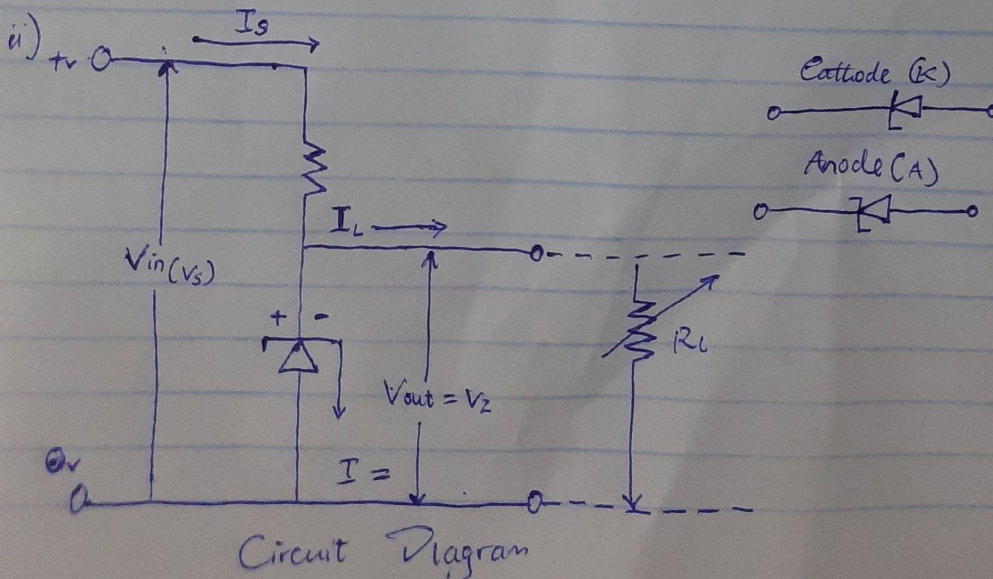 ii)
+v
IS
Cathode (K)
Anode (A)
IL
Vin(Vs)
+ -
RL
Vout = Vz
I =
0v
Circuit Diagram